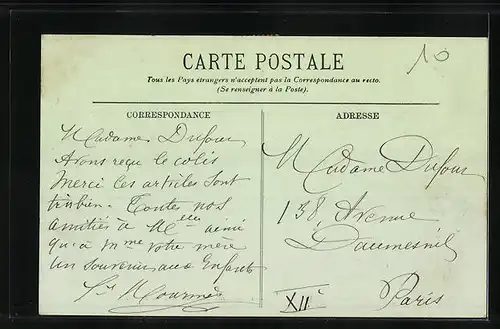 10
CARTE POSTALE
Tous les Pays étrangers n'acceptent pas la Correspondance au recto.
(Se renseigner à la Poste).
CORRESPONDANCE
Madame Dufour
Avons reçu le colis
Merci les articles sont
très bien. Toutes nos
amitiés à Melle ainsi
qu'à Mme votre mère
Un souvenir aux Enfants
ADRESSE
Madame Dufour
138 Avenue
Daumesnil
Paris
XIIe